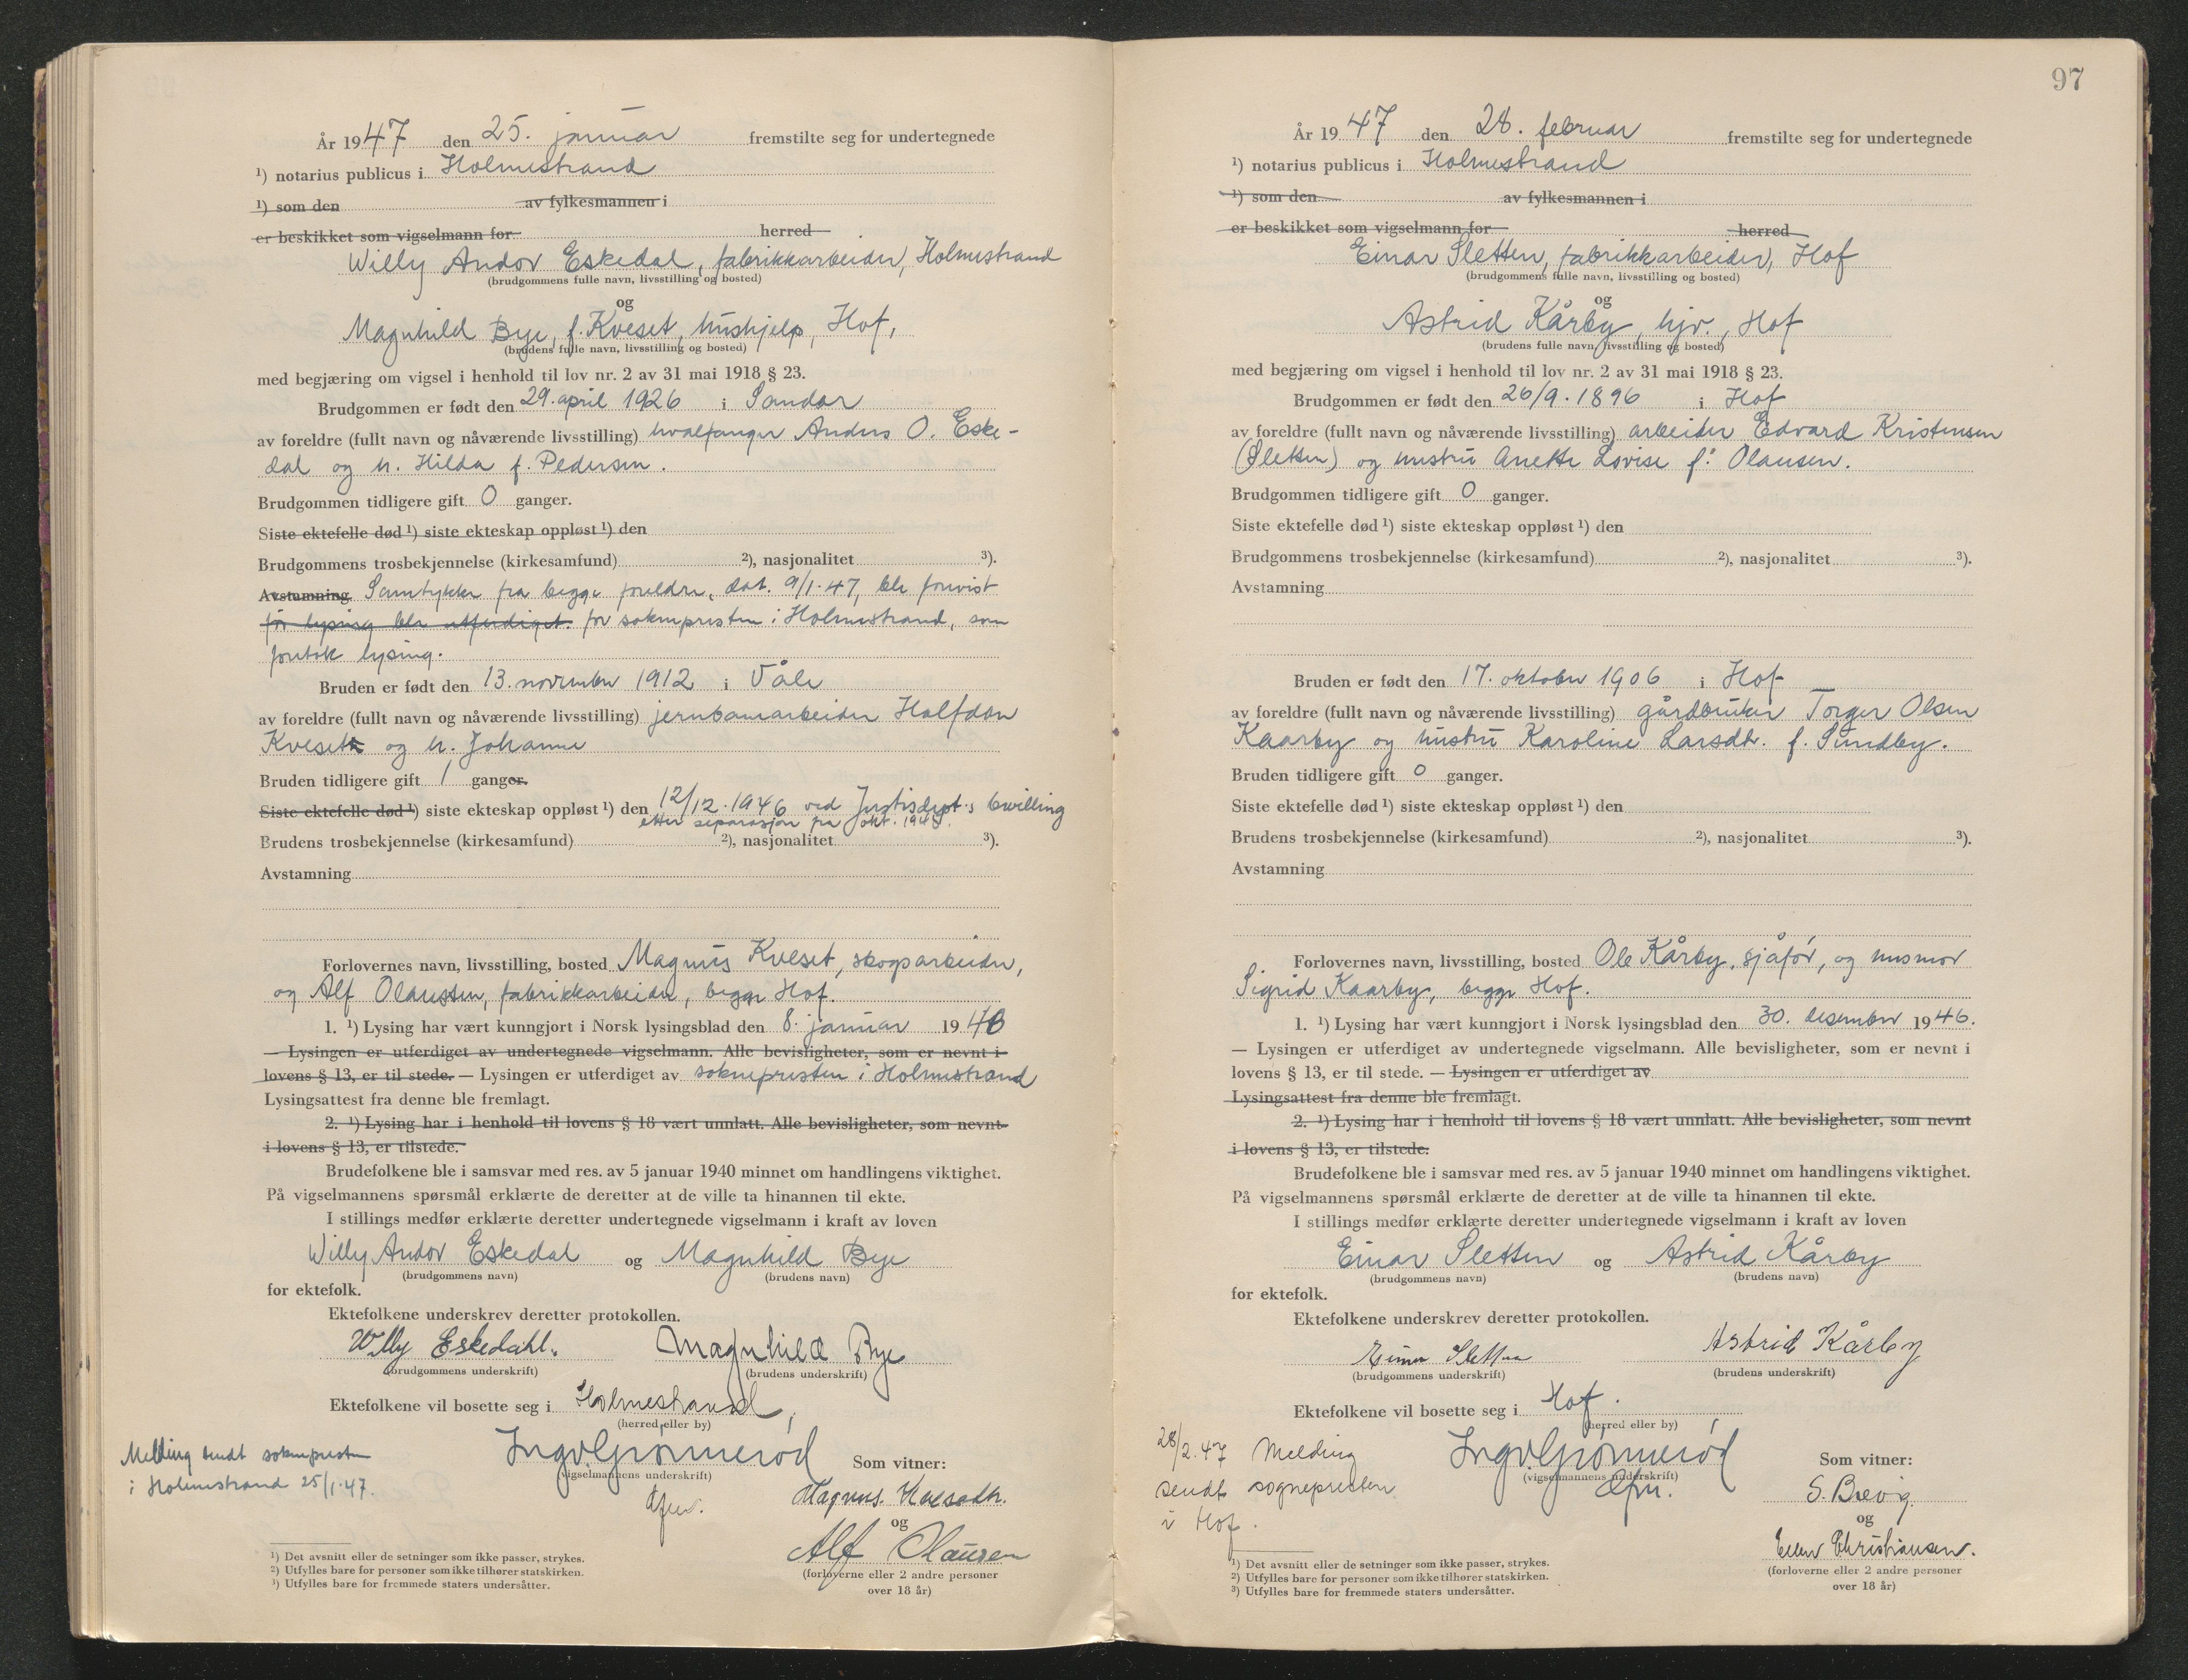 År 1947 den 25. januar fremstilte seg for undertegnede
¹) notarius publicus i Holmestrand
¹) som den av fylkesmannen i
er beskikket som vigselmann for herred
Willy Andor Eskedal, fabrikkarbeider, Holmestrand
(brudgommens fulle navn, livsstilling og bosted)
og
Magnhild Bye, f. Kveset, hushjelp, Hof,
(brudens fulle navn, livsstilling og bosted)
med begjæring om vigsel i henhold til lov nr. 2 av 31 mai 1918 § 23.
Brudgommen er født den 29. april 1926 i Sandar
av foreldre (fullt navn og nåværende livsstilling) hvalfanger Anders O. Eske-
dal og h. Hilda f. Pedersen.
Brudgommen tidligere gift 0 ganger.
Siste ektefelle død ¹) siste ekteskap oppløst ¹) den
Brudgommens trosbekjennelse (kirkesamfund) ²), nasjonalitet ³).
Avstamning Samtykke fra begge foreldre, dat. 9/1.47, ble forevist
før lysing ble utferdiget. for soknepresten i Holmestrand, som
foretok lysing.
Bruden er født den 13. november 1912 i Våle
av foreldre (fullt navn og nåværende livsstilling) jernbanearbeider Halfdan
Kveset og h. Johanne
Bruden tidligere gift 1 ganger.
Siste ektefelle død ¹) siste ekteskap oppløst ¹) den 12/12.1946 ved Justisdept.s bevilling
etter separasjon fra okt. 1945.
Brudens trosbekjennelse (kirkesamfund) ²), nasjonalitet ³).
Avstamning
Forlovernes navn, livsstilling, bosted Magnus Kveset, skogsarbeider,
og Alf Olaussen, fabrikkarbeider, begge Hof.
1. ¹) Lysing har vært kunngjort i Norsk lysingsblad den 8. januar 19
— Lysingen er utferdiget av undertegnede vigselmann. Alle bevisligheter, som er nevnt i
lovens § 13, er til stede. — Lysingen er utferdiget av soknepresten i Holmestrand
Lysingsattest fra denne ble fremlagt.
2. ¹) Lysing har i henhold til lovens § 18 vært unnlatt. Alle bevisligheter, som nevnt
i lovens § 13, er tilstede.
Brudefolkene ble i samsvar med res. av 5 januar 1940 minnet om handlingens viktighet.
På vigselmannens spørsmål erklærte de deretter at de ville ta hinannen til ekte.
I stillings medfør erklærte deretter undertegnede vigselmann i kraft av loven
Willy Andor Eskedal og Magnhild Bye
(brudgommens navn) (brudens navn)
for ektefolk.
Ektefolkene underskrev deretter protokollen.
Willy Eskedahl. Magnhild Bye
(brudgommens underskrift) (brudens underskrift)
Ektefolkene vil bosette seg i Holmestrand,
(herred eller by)
Melding sendt soknepresten
i Holmestrand 25/1.47.
Ingv. Grønnerød
(vigselmannens underskrift)
Som vitner:
Magnus.
og
Alf Olausen
(forloverne eller 2 andre personer
over 18 år)
¹) Det avsnitt eller de setninger som ikke passer, strykes.
²) Utfylles bare for personer som ikke tilhører statskirken.
³) Utfylles bare for fremmede staters undersåtter.
97
År 1947 den 28. februar fremstilte seg for undertegnede
¹) notarius publicus i Holmestrand
¹) som den av fylkesmannen i
er beskikket som vigselmann for herred
Einar Sletten, fabrikkarbeider, Hof
(brudgommens fulle navn, livsstilling og bosted)
og
Astrid Kårby, hjv., Hof
(brudens fulle navn, livsstilling og bosted)
med begjæring om vigsel i henhold til lov nr. 2 av 31 mai 1918 § 23.
Brudgommen er født den 26/9.1896 i Hof
av foreldre (fullt navn og nåværende livsstilling) arbeider Edvard Kristensen
(Sletten) og hustru Anette Lovise f. Olausen.
Brudgommen tidligere gift 0 ganger.
Siste ektefelle død ¹) siste ekteskap oppløst ¹) den
Brudgommens trosbekjennelse (kirkesamfund) ²), nasjonalitet ³).
Avstamning
Bruden er født den 17. oktober 1906 i Hof
av foreldre (fullt navn og nåværende livsstilling) gårdbruker Torger Olsen
Kaarby og hustru Karoline Larsdt. f. Sundby.
Bruden tidligere gift 0 ganger.
Siste ektefelle død ¹) siste ekteskap oppløst ¹) den
Brudens trosbekjennelse (kirkesamfund) ²), nasjonalitet ³).
Avstamning
Forlovernes navn, livsstilling, bosted Ole Kårby, sjåfør, og husmor
Sigrid Kaarby, begge Hof.
1. ¹) Lysing har vært kunngjort i Norsk lysingsblad den 30. desember 1946.
— Lysingen er utferdiget av undertegnede vigselmann. Alle bevisligheter, som er nevnt i
lovens § 13, er til stede. — Lysingen er utferdiget av
Lysingsattest fra denne ble fremlagt.
2. ¹) Lysing har i henhold til lovens § 18 vært unnlatt. Alle bevisligheter, som nevnt
i lovens § 13, er tilstede.
Brudefolkene ble i samsvar med res. av 5 januar 1940 minnet om handlingens viktighet.
På vigselmannens spørsmål erklærte de deretter at de ville ta hinannen til ekte.
I stillings medfør erklærte deretter undertegnede vigselmann i kraft av loven
Einar Sletten og Astrid Kårby
(brudgommens navn) (brudens navn)
for ektefolk.
Ektefolkene underskrev deretter protokollen.
Einar Sletten Astrid Kårby
(brudgommens underskrift) (brudens underskrift)
Ektefolkene vil bosette seg i Hof.
(herred eller by)
28/2.47 Melding
sendt sognepresten
i Hof.
Ingv. Grønnerød
(vigselmannens underskrift)
Som vitner:
S. Brevig
og
Ellen Christiansen.
(forloverne eller 2 andre personer
over 18 år)
¹) Det avsnitt eller de setninger som ikke passer, strykes.
²) Utfylles bare for personer som ikke tilhører statskirken.
³) Utfylles bare for fremmede staters undersåtter.